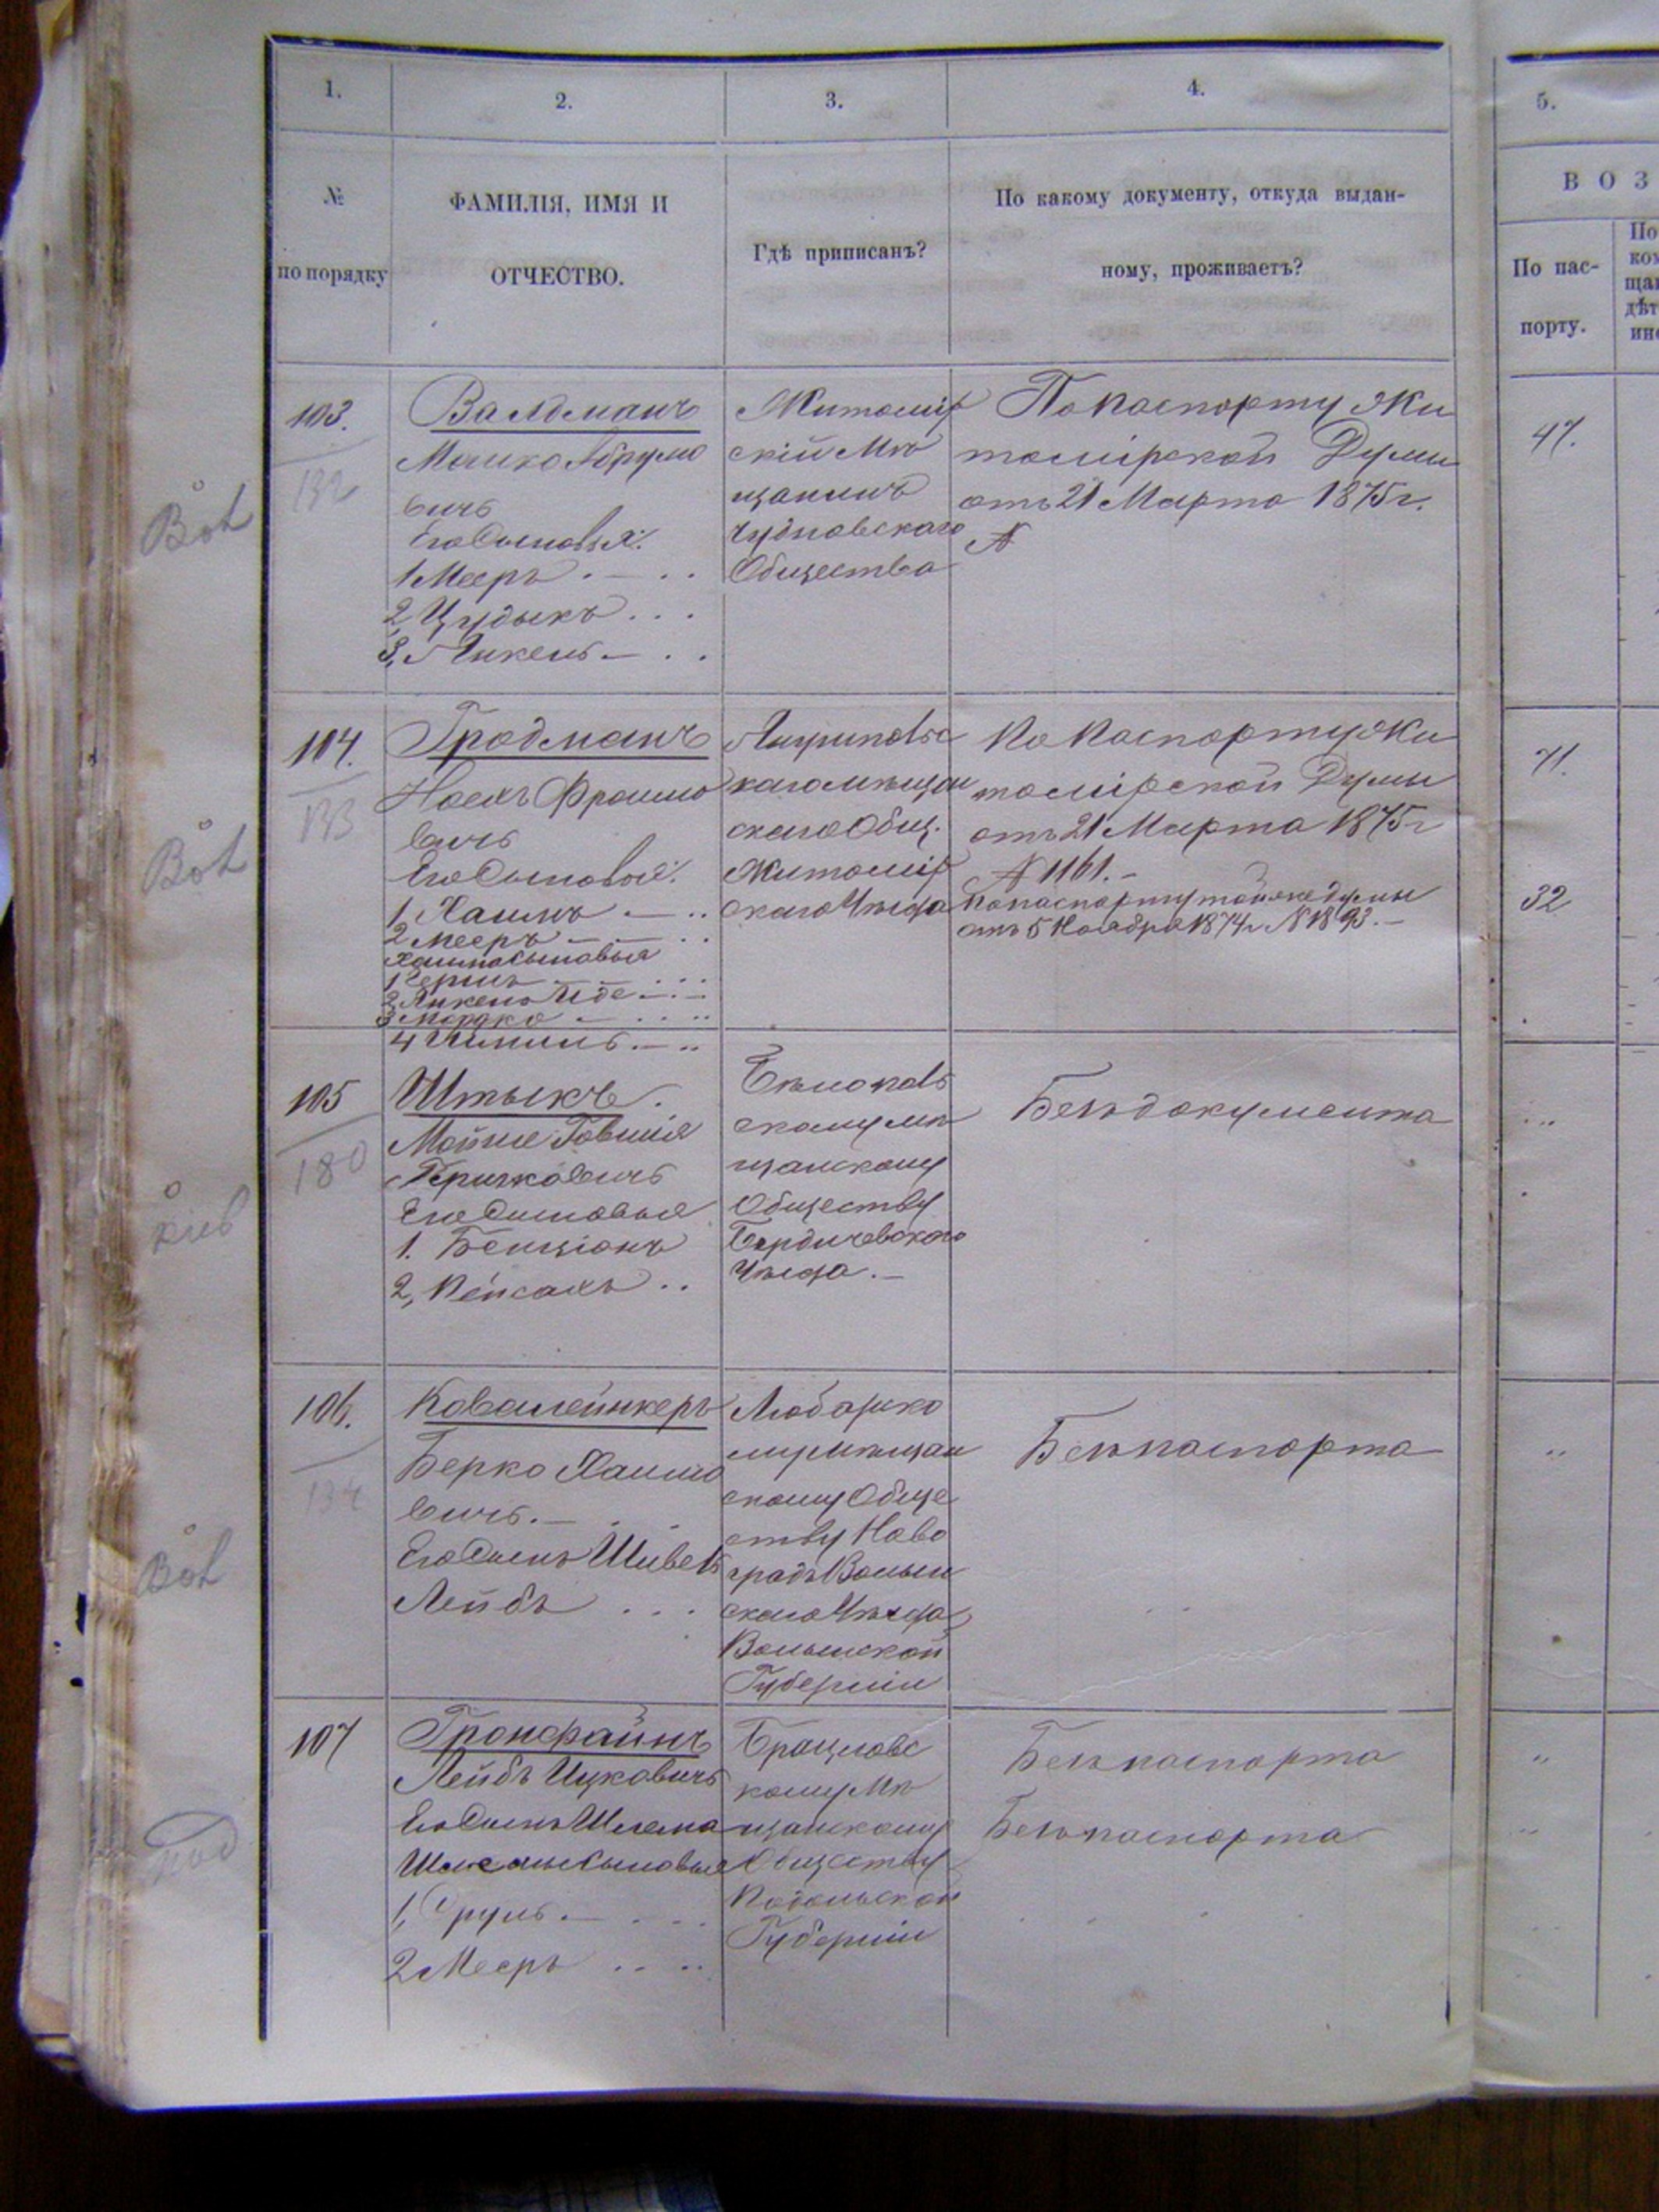 1.
2.
3.
4.
5.
№
по порядку
ФАМИЛІЯ, ИМЯ И
ОТЧЕСТВО.
Гдѣ приписанъ?
По какому документу, откуда выдан-
ному, проживаетъ?
ВОЗ
По пас-
порту.
103.
132
Валдманъ
Мошко Абрумо
вичъ
Его Сыновья:
1 Мееръ
2, Цудыкъ
3, Янкель
Житомір
скій Мѣ
щанинъ
Чудновскаго
Общества
По паспорту Жи
томірской Думы
отъ 21 Марта 1875 г.
№
47.
104.
133
Гродманъ
Фроимо
вичъ
Его Сыновья:
1, Хаимъ
2 Мееръ
Хаима Сыновья
1 Гершъ
2, Янкель
3 Мордко
4
каго мѣщан
скаго Общ.
Житомір
скаго Уѣзда
По паспорту Жи
томірской Думы
отъ 21 Марта 1875 г
№ 1161.
По паспорту той же думы
отъ 5 Ноября 1874 г. № 1893.
71.
32
105
180
Штыкъ.
Его Сыновья
1. Бенціонъ
2, Пейсахъ
скому мѣ
щанскому
Обществу
Бердичевскаго
Уѣзда.
Безъ документа
106.
134
Ковалейнкеръ
Берко Хаимо
вичъ.
Его Сынъ
Лейбъ
Любарско
му мѣщан
скому Обще
ству Ново
градъ Волын
скаго Уѣзда
Волынской
Губерніи
Безъ паспорта
107
Гронфайнъ
Лейбъ Ицковичъ
Его Сынъ Шлема
Шлемы Сыновья
1, Сруль
2 Мееръ
Брацловс
кому Мѣ
щанскому
Обществу
Подольской
Губерніи
Безъ паспорта
Безъ паспорта